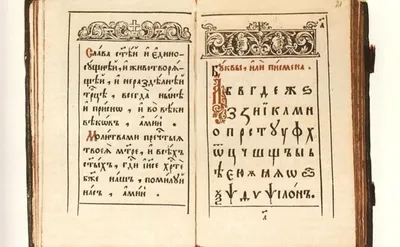 Сла́ва ст҃ѣ́й и҆ є҆дино
сꙋ́щнѣй, и҆ животворѧ́
щей, и҆ нераздѣ́лнѣй
трⷪ҇цѣ, всегда̀ ны́нѣ
и҆ при́снѡ, и҆ во вѣ́ки
вѣкѡ́въ, а҆ми́нь
Моли́твами пречⷭ҇тыѧ
твоеѧ̀ мт҃ре, и҆ всѣ́хъ
ст҃ы́хъ, гдⷭ҇и і҆и҃се хрⷭ҇тѐ
бж҃е на́шъ, поми́лꙋй
на́съ, а҆ми́нь
Бꙋ́квы, и҆лѝ писмена̀
А б в г д є ж ѕ
з ї к л м н
о п р с т ꙋ ф х
ѿ ц ч ш щ ъ ы ь